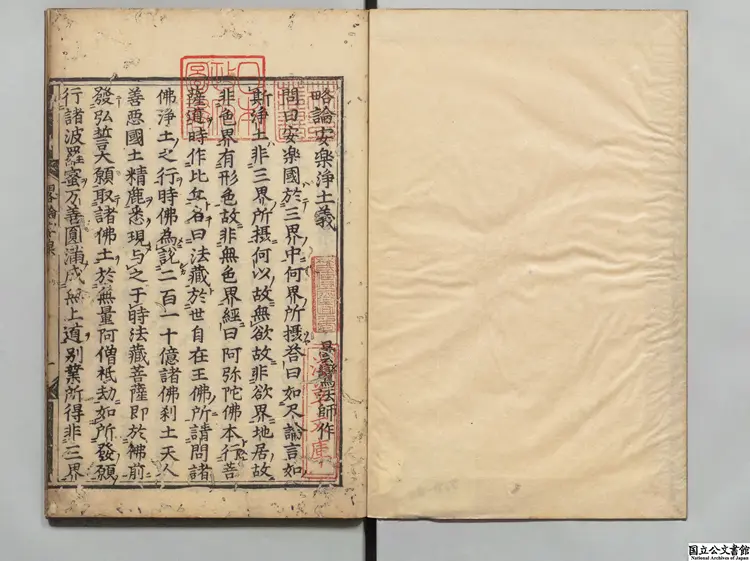 略論安楽浄土義
曇鸞法師作
問曰安楽國於三界中何界所攝荅曰如尺論言如
斯浄土非三界所攝何以故無欲故非欲界地居故
非色界有形色故非無色界經曰阿弥陀佛本行菩
薩道時作比丘名曰法藏於世自在王佛所請問諸
佛浄土之行時佛為說二百一十億諸佛刹土天人
善悪國土精麁悉現与之于時法藏菩薩即於佛前
發弘誓大願取諸佛土於無量阿僧祇劫如所發願
行諸波羅蜜万善圓満成無上道別業所得非三界
浅草文庫
国立公文書館
National Archives of Japan